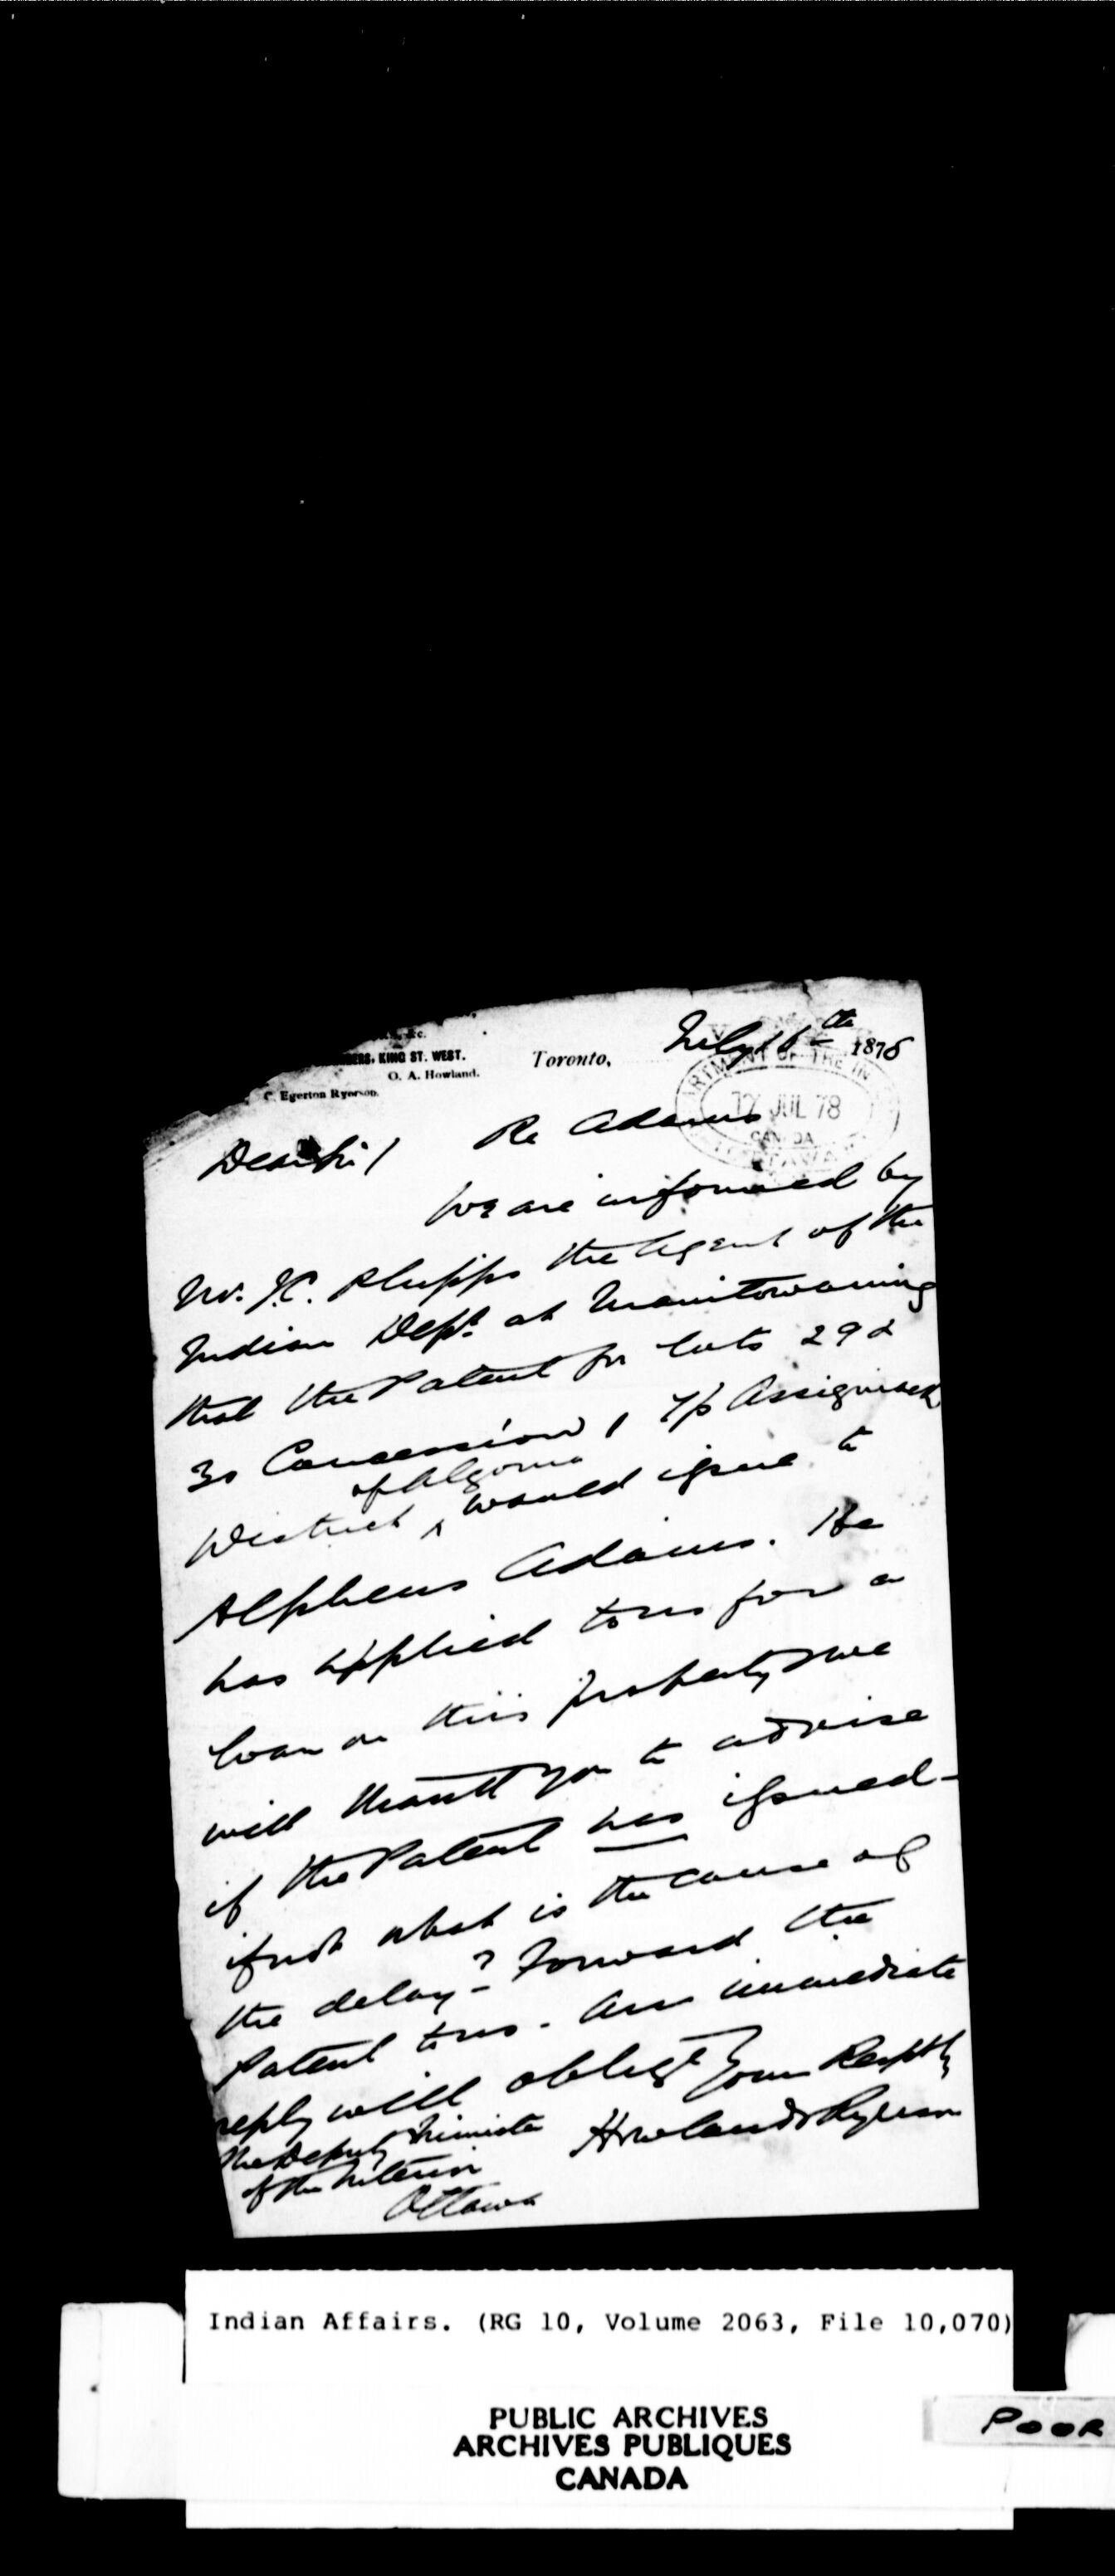 &c.
KING ST. WEST.
O. A. Howland.
C. Egerton Ryerson.
Toronto, July 16th 1878
DEPARTMENT OF THE IN
17 JUL 78
CANADA
OTTAWA
Dear Sir/ Re Adams
We are informed by
Mr. J.C. Phipps the Agent of the
Indian Dept. at Manitowaning
that the Patent for lots 29 &
30 Concession 1 T/p Assiginack
District of Algoma would issue to
Alpheus Adams. He
has applied to us for a
loan on this property & we
will thank you to advise
if the Patent has issued -
if not what is the cause of
the delay? Forward the
Patent to us. An immediate
reply will oblige
Yours Respthly
Howland & Ryerson
The Deputy Minister
of the Interior
Ottawa
Indian Affairs. (RG 10, Volume 2063, File 10,070)
PUBLIC ARCHIVES
ARCHIVES PUBLIQUES
CANADA
POOR